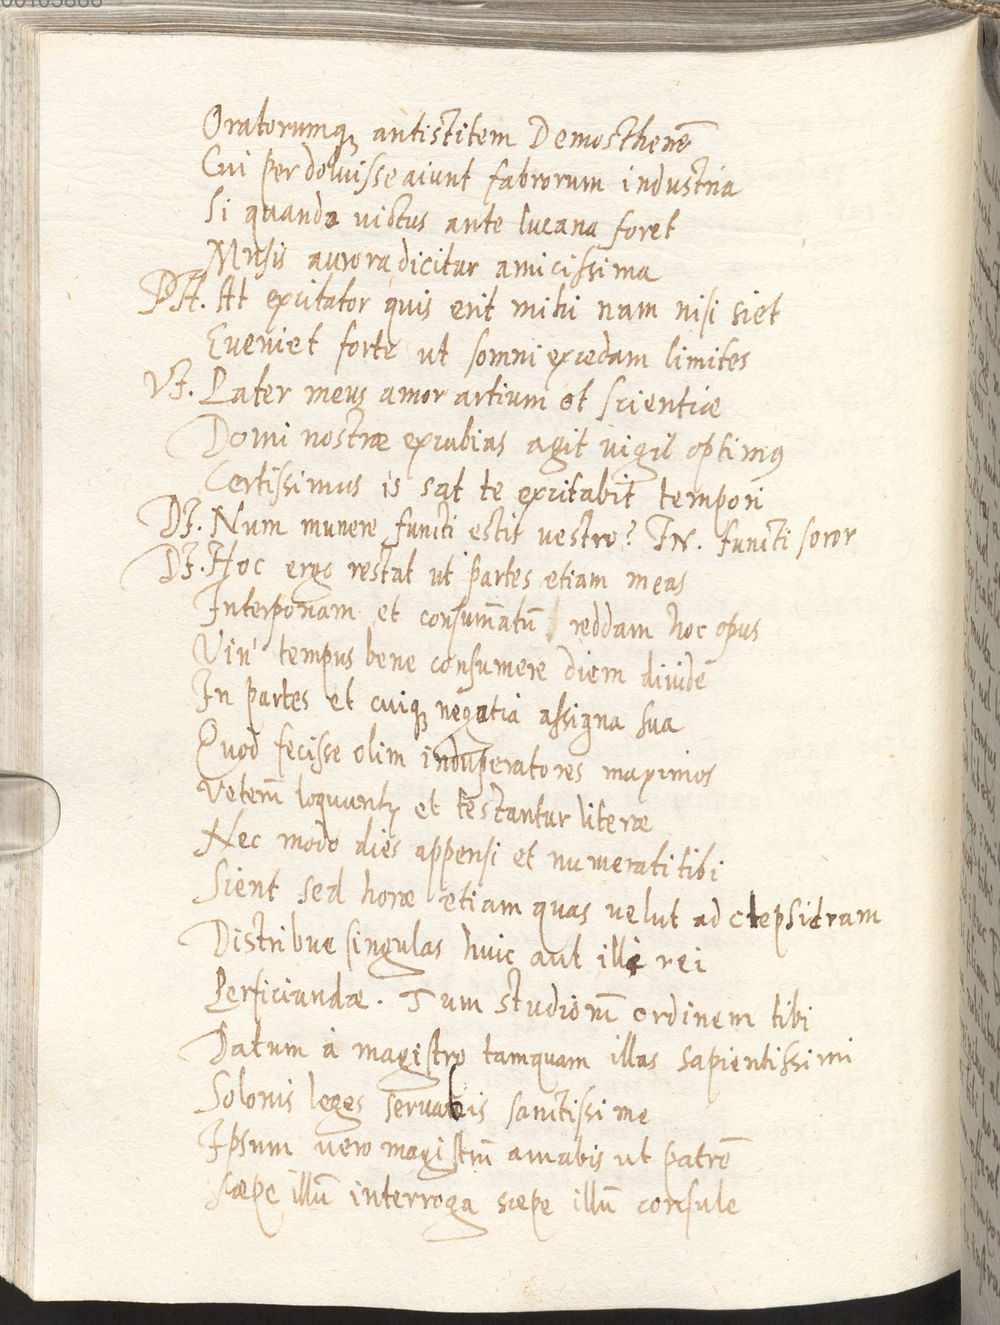 Oratorumq; antistitem Demosthenē
Cui perdoluisse aiunt fabrorum industria
Si quando victus ante lucana foret
Musis aurora dicitur amicissima
PH. At excitator quis erit mihi nam nisi siet
Eveniet forte ut somni excedam limites
VI. Pater meus amor artium et scientiæ
Domi nostræ excubias agit vigil optimus
Certissimus is sat te excitabit tempori
DI. Num munere functi estis vestro? IN. functi soror
DI. Hoc ergo restat ut partes etiam meas
Interponam et consum̄atū reddam hoc opus
Vin' tempus bene consumere diem dividē
In partes et cuiq; negotia assigna sua
Quod fecisse olim induperatores maximos
Veterū loquuntr et testantur literæ
Nec modo dies appensi et numerati tibi
Sient sed horæ etiam quas velut ad clepsidram
Distribue singulas huic aut illi rei
Perficiundæ. Tum studiorū ordinem tibi
Datum à magistro tamquam illas sapientissimi
Solonis leges servabis sanctissime
Ipsum vero magistrū amabis ut patrē
Sæpe illū interroga sæpe illū consule